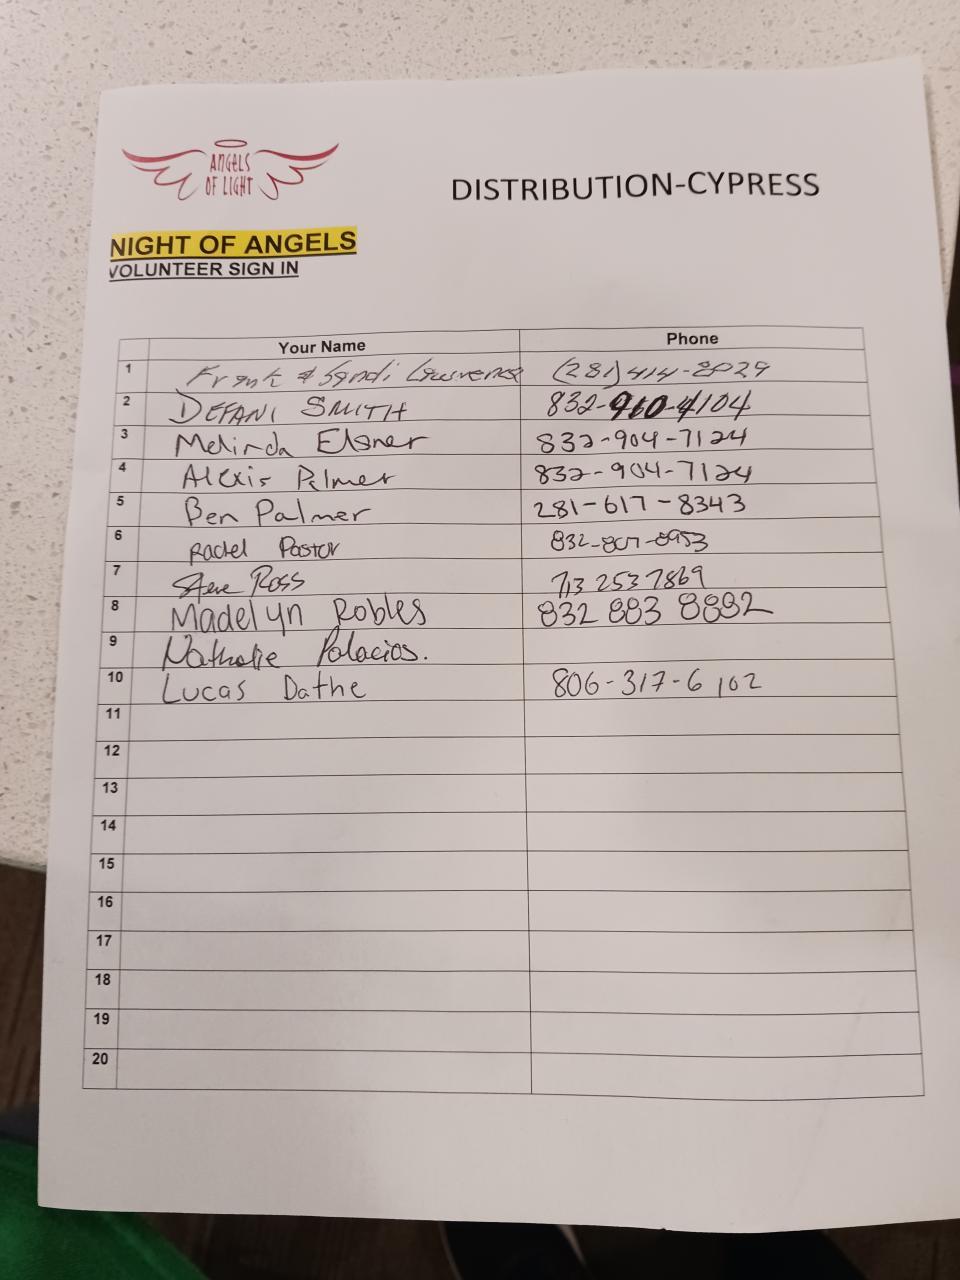 ANGELS
OF LIGHT
DISTRIBUTION-CYPRESS
NIGHT OF ANGELS
VOLUNTEER SIGN IN
Your Name Phone
1 Frank & Sandi Lawrence (281) 414-8029
2 DEFANI SMITH 832-960-4104
3 Melinda Elsner 832-904-7124
4 Alexis Palmer 832-904-7124
5 Ben Palmer 281-617-8343
6 Pastor 832-807-8953
7 Steve Ross 713 253 7869
8 Madelyn Robles 832 883 8882
9 Nathalie Palacios.
10 Lucas Dathe 806-317-6102
11
12
13
14
15
16
17
18
19
20